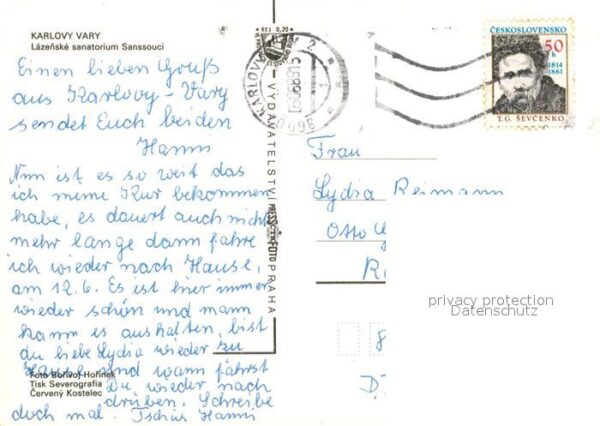 KARLOVY VARY
Lázeňské sanatorium Sanssouci
Einen lieben Gruß
aus Karlovy-Vary
sendet Euch beiden
Hanni
Nun ist es so weit das
ich meine Kur bekommen
habe, es dauert auch nicht
mehr lange dann fahre
ich wieder nach Hause,
am 12.6. Es ist hier immer
wieder schön und mann
kann es aushalten, bist
du liebe Lydia wieder zu
Hause und wann fährst
Du wieder nach
drüben. Schreibe
doch mal. Tschüs Hanni
Foto Bořivoj Hořínek
Tisk Severografia
Červený Kostelec
Kčs 0,20
VYDAVATELSTVÍ PRESSFOTO PRAHA
KARLOVY VARY 2
ČESKOSLOVENSKO
50 h
1814
1861
T. G. ŠEVČENKO
Frau
Lydia Reimann
Otto
privacy protection
Datenschutz
8
D